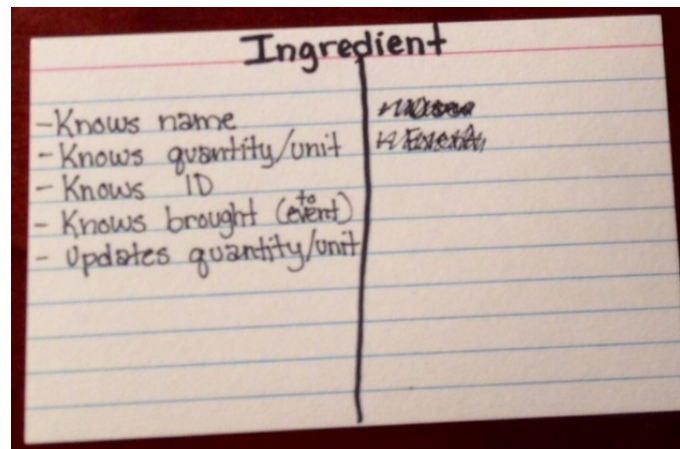 Ingredient
-Knows name
- Knows quantity/unit
- Knows ID
- Knows brought (to event)
- Updates quantity/unit